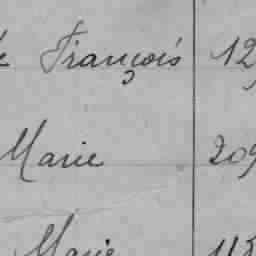 François 12
Marie 209
Marie 115